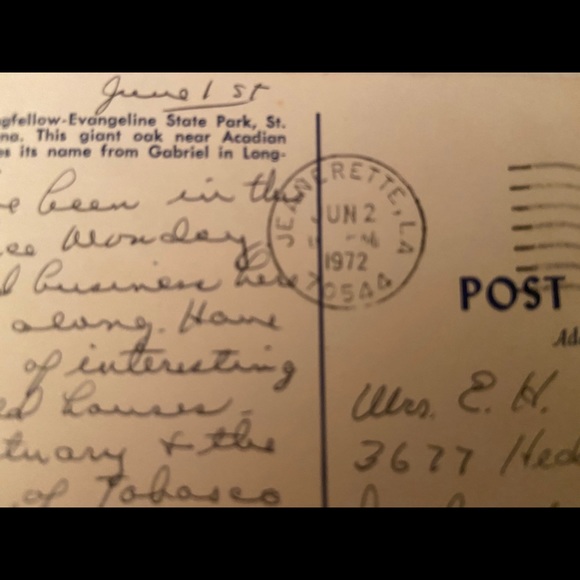 June 1 st
gfellow-Evangeline State Park, St.
na. This giant oak near Acadian
es its name from Gabriel in Long-
e been in the
ee Monday
d business here
along. Have
of interesting
ed houses.
tuary & the
of Tobasco
JEANERETTE, LA
JUN 2
1972
70544
POST
Ad
Mrs. E. H.
3677 Hed